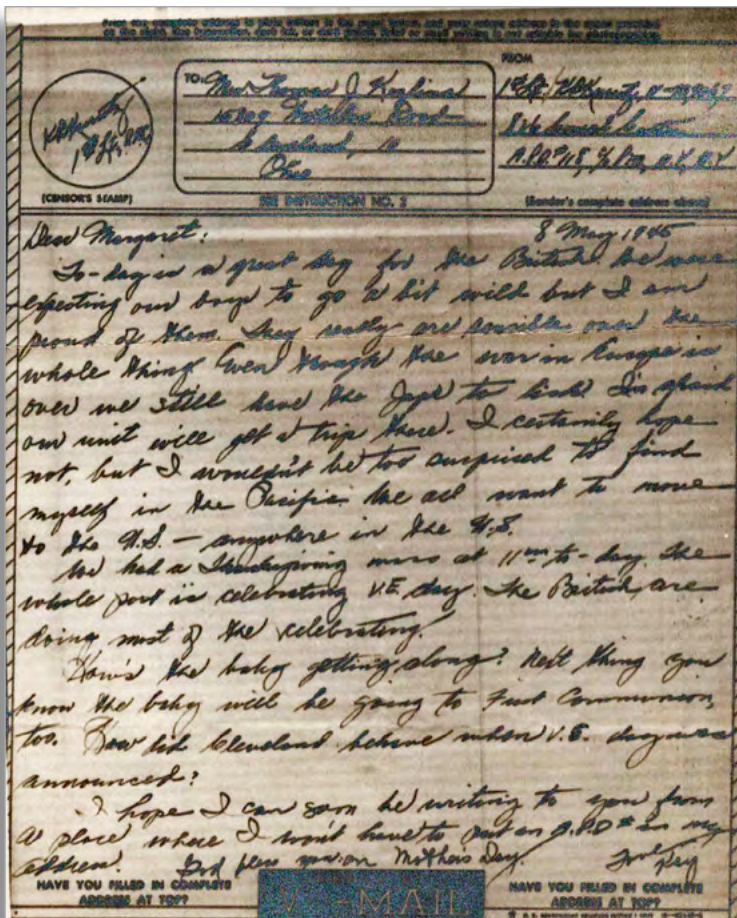 Print the complete address in plain letters in the panel below, and your return address in the space provided
on the right. Use typewriter, dark ink, or dark pencil. Faint or small writing is not suitable for photographing.
TO:
Mrs. Thomas J.
Road
Cleveland, 10
Ohio
FROM
1st Lt.
A.P.O. #118, c/o P.M., N.Y., N.Y.
1st Lt.
(CENSOR'S STAMP)
SEE INSTRUCTION NO. 2
(Sender's complete address above)
8 May 1945
Dear Margaret:
To-day is a great day for the British. We were
expecting our boys to go a bit wild but I am
proud of them. They really are sensible over the
whole thing. Even though the war in Europe is
over we still have the Japs to lick. I'm afraid
our unit will get a trip there. I certainly hope
not, but I wouldn't be too surprised to find
myself in the Pacific. We all want to move
to the U.S. — anywhere in the U.S.
We had a Thanksgiving mass at 11 to-day. The
whole post is celebrating V.E. day. The British are
doing most of the celebrating.
How's the baby getting along? Next thing you
know the baby will be going to First Communion,
too. How did Cleveland behave when V.E. day was
announced?
I hope I can soon be writing to you from
a place where I won't have to put an A.P.O # in my
address. God bless you on Mother's Day. Love
Kay
HAVE YOU FILLED IN COMPLETE
ADDRESS AT TOP?
V-MAIL
HAVE YOU FILLED IN COMPLETE
ADDRESS AT TOP?